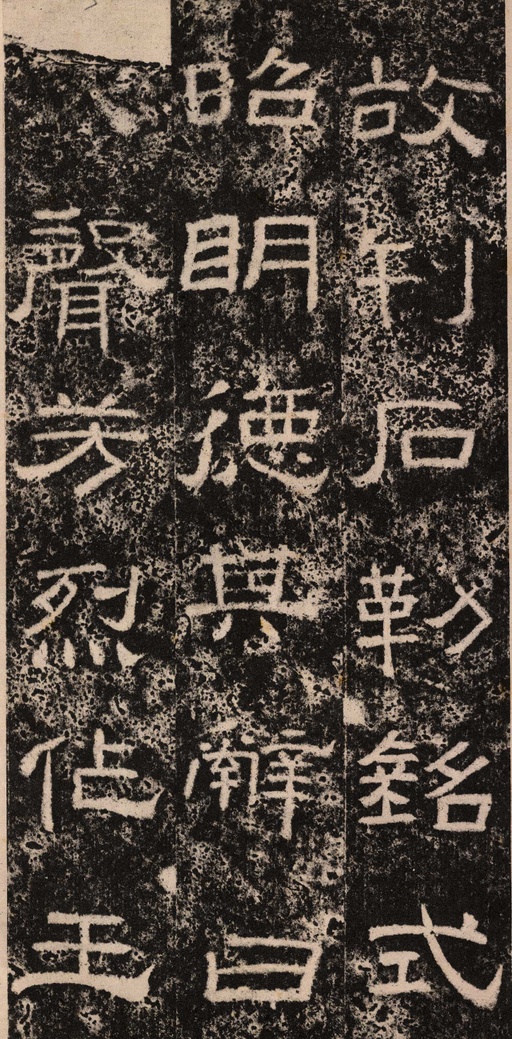 故刊石勒銘式
昭明德其辭曰
聲芳烈王